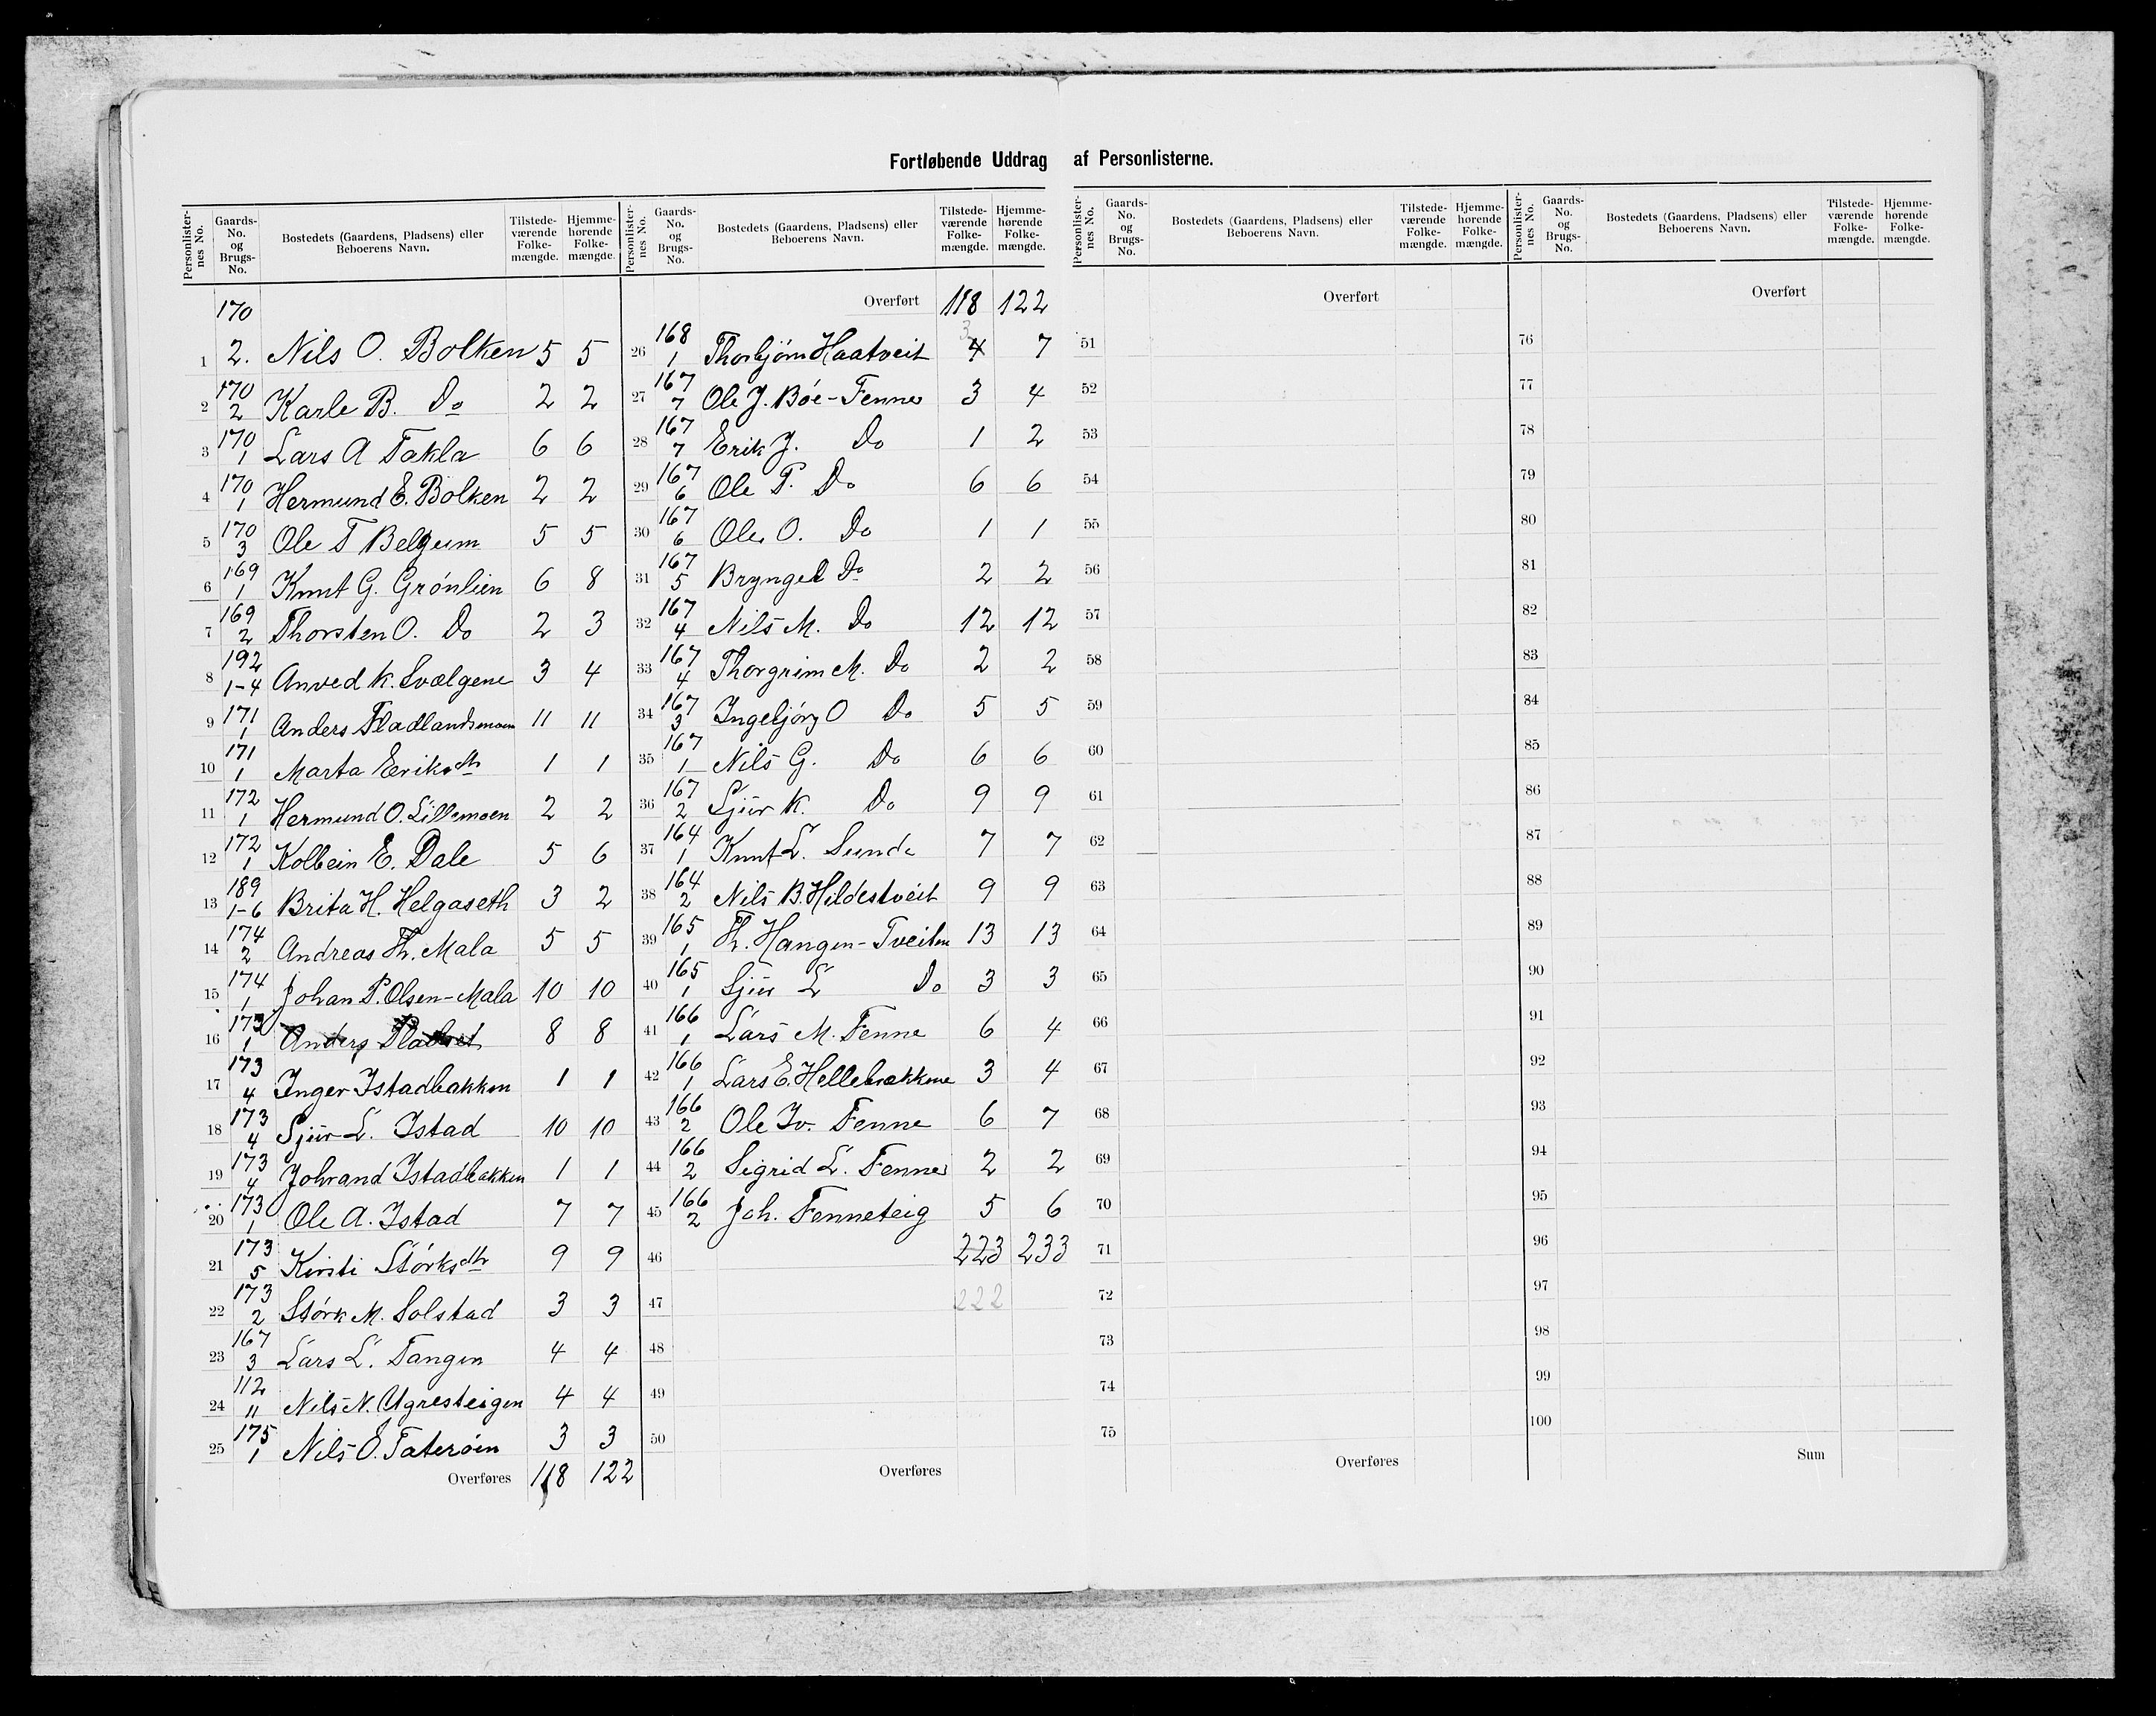 Fortløbende Uddrag af Personlisterne.
Personlisternes No. Gaards-No. og Brugs-No. Bostedets (Gaardens, Pladsens) eller Beboerens Navn. Tilstedeværende Folkemængde. Hjemmehørende Folkemængde.
1 170 2. Nils O. Bolken 5 5
2 170 2 Karle B. Do 2 2
3 170 1 Lars A Takla 6 6
4 170 1 Hermund E. Bolken 2 2
5 170 3 Ole T Belgum 5 5
6 169 1 Knut G. Grönlien 6 8
7 169 2 Thorsten O. Do 2 3
8 192 1-4 Anved K. Svælgene 3 4
9 171 1 Anders Fladlandsmoen 11 11
10 171 1 Marta Eriksdtr 1 1
11 172 1 Hermund O. Lillemoen 2 2
12 172 1 Kolbein E. Dale 5 6
13 189 1-6 Brita H. Helgaseth 3 2
14 174 2 Andreas Th. Mala 5 5
15 174 1 Johan P. Olsen-Mala 10 10
16 173 1 Anders 8 8
17 173 4 Inger Istadbakken 1 1
18 173 4 Sjur L. Istad 10 10
19 173 4 Johrand Istadbakken 1 1
20 173 1 Ole A. Istad 7 7
21 173 5 Kirsti Störksdtr 9 9
22 173 2 Störk M. Solstad 3 3
23 167 3 Lars L. Tangen 4 4
24 112 11 Nils N. Ugresteigen 4 4
25 175 1 Nils O. Tateröen 3 3
Overføres 118 122
Personlisternes No. Gaards-No. og Brugs-No. Bostedets (Gaardens, Pladsens) eller Beboerens Navn. Tilstedeværende Folkemængde. Hjemmehørende Folkemængde.
Overført 118 122
26 168 1 Thorbjörn Haatveit 4 3 7
27 167 7 Ole J. Böe-Fenne 3 4
28 167 7 Erik J. Do 1 2
29 167 6 Ole P. Do 6 6
30 167 6 Ole O. Do 1 1
31 167 5 Bryngel Do 2 2
32 167 4 Nils M. Do 12 12
33 167 4 Thorgrim M. Do 2 2
34 167 3 Ingebjörg O Do 5 5
35 167 1 Nils G. Do 6 6
36 167 2 Sjur K. Do 9 9
37 164 1 Knut L. Sunde 7 7
38 164 2 Nils B. Hildestveit 9 9
39 165 1 Th. Hangen-Tveiten 13 13
40 165 1 Sjur L Do 3 3
41 166 1 Lars M. Fenne 6 4
42 166 1 Lars E. Hellebrekkene 3 4
43 166 2 Ole Iv. Fenne 6 7
44 166 2 Sigrid L. Fenne 2 2
45 166 2 Joh. Fenneteig 5 6
46 223 233
47 222
48
49
50
Overføres
Personlisternes No. Gaards-No. og Brugs-No. Bostedets (Gaardens, Pladsens) eller Beboerens Navn. Tilstedeværende Folkemængde. Hjemmehørende Folkemængde.
Overført
51
52
53
54
55
56
57
58
59
60
61
62
63
64
65
66
67
68
69
70
71
72
73
74
75
Overføres
Personlisternes No. Gaards-No. og Brugs-No. Bostedets (Gaardens, Pladsens) eller Beboerens Navn. Tilstedeværende Folkemængde. Hjemmehørende Folkemængde.
Overført
76
77
78
79
80
81
82
83
84
85
86
87
88
89
90
91
92
93
94
95
96
97
98
99
100
Sum